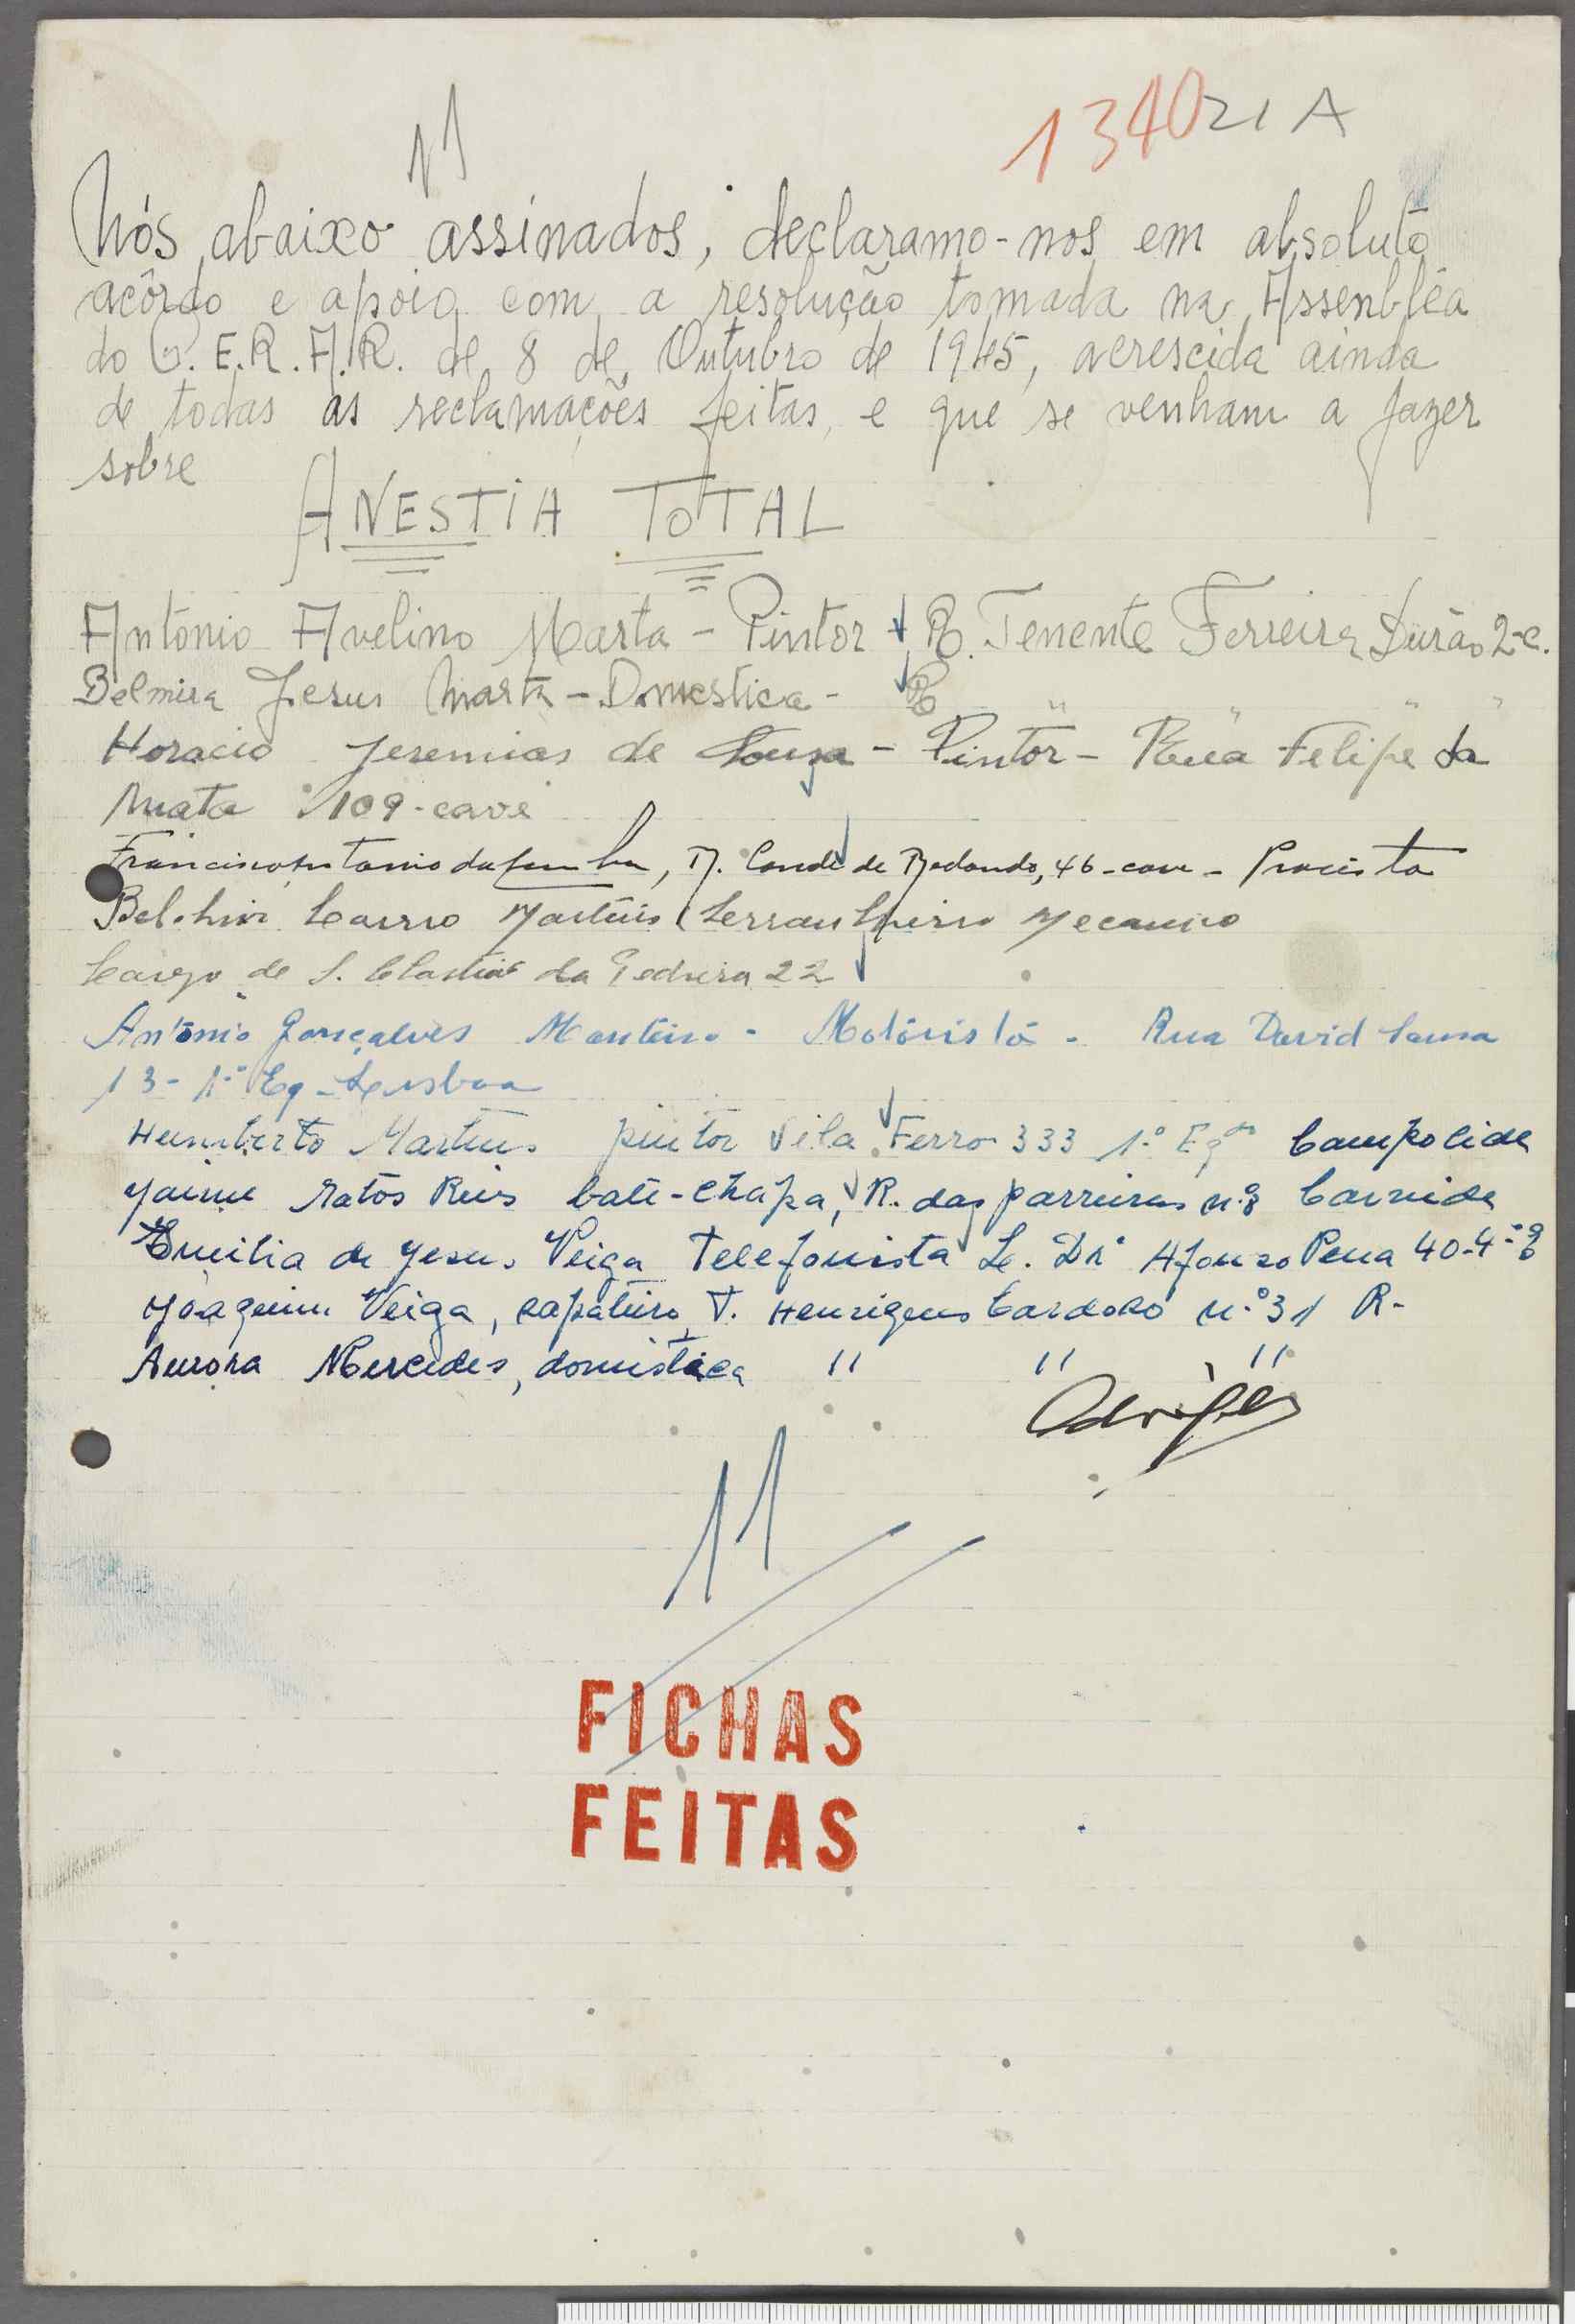 11
134021A
Nós abaixo assinados, declaramo-nos em absoluto
acôrdo e apoio com a resolução tomada na Assenbléa
do C.E.R.A.R. de 8 de Outubro de 1945, acrescida ainda
de todas as reclamações feitas, e que se venham a fazer
sobre
ANESTIA TOTAL
António Avelino Marta - Pintor - R. Tenente Ferreira Durão 2-c.
Belmira Jesus Marta - Domestica - R " " " "
Horacio Jeremias de Souza - Pintor - Rua Felipe da
Mata 109-cave
Francisco Antonio da Cunha, R. Conde de Redondo, 46-cave -
Martins Serralheiro Mecanico
Largo de S. da Pedreira 22
António Gonçalves Monteiro - Motórista - Rua David Sousa
13-1º Eq - Lisboa
Humberto Martins pintor Vila Ferro 333 1º Eqdo Campolide
Jaime Ratos Reis bate-chapa, R. das parreiras nº8 Carnide
Emilia de Jesus Veiga Telefonista L. Dr Afonso Pena 40-4º E
Joaquim Veiga, sapateiro, T. Henriques Cardoso nº 31 R-
Aurora Mercedes, doméstica " " "
11
FICHAS
FEITAS